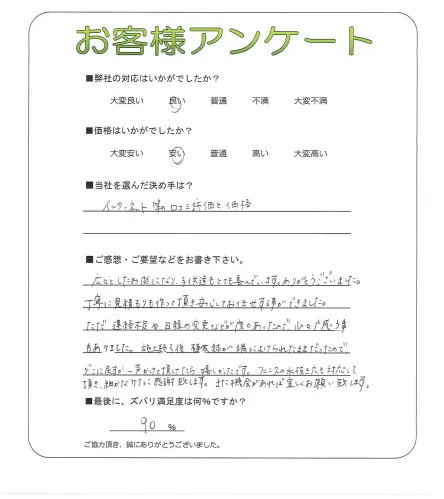 お客様アンケート
■弊社の対応はいかがでしたか?
大変良い 良い 普通 不満 大変不満
■価格はいかがでしたか?
大変安い 安い 普通 高い 大変高い
■当社を選んだ決め手は?
インターネット等の口コミ評価と価格
■ご感想・ご要望などをお書き下さい。
広々としたお庭になり、子供達もとても喜んでいます。ありがとうございました。
丁寧に見積もりも作って頂き安心してお任せする事ができました。
ただ連絡不足や日程の変更などが度々あったので、少々戸惑う事
もありました。施工終了後 植木鉢が横によけられたままだったので、
どこに戻すか一声かけて頂けたら嬉しかったです。フェンスの水抜き穴も対応して
頂き、細かなケアに感謝致します。また機会があれば宜しくお願い致します。
■最後に、ズバリ満足度は何%ですか?
90 %
ご協力頂き、誠にありがとうございました。